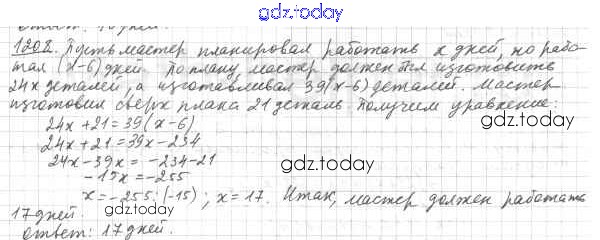 gdz.today
Ответ: 10 дней.
1208. Пусть мастер планировал работать x дней, но рабо-
тал (x-6) дней. По плану мастер должен был изготовить
24x деталей, а изготавливал 39(x-6) деталей. Мастер
изготовил сверх плана 21 деталь. Получим уравнение:
24x+21=39(x-6)
24x+21=39x-234
gdz.today
24x-39x=-234-21
-15x=-255
x=-255:(-15); x=17. Итак, мастер должен работать
17 дней.
gdz.today
Ответ: 17 дней.